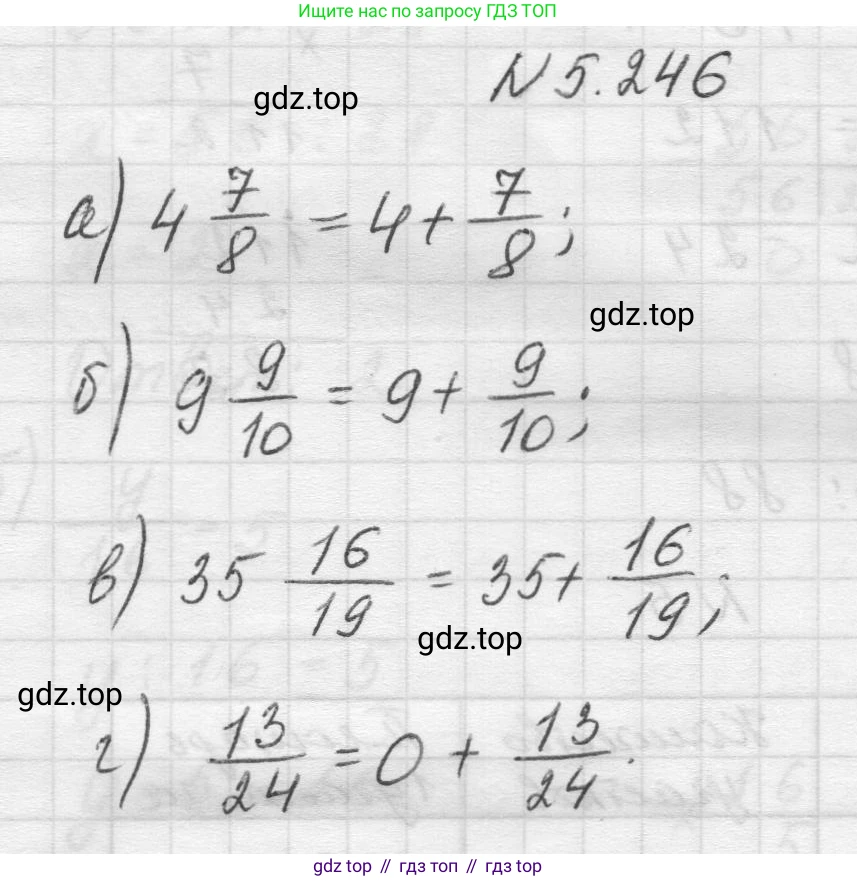 Ищите нас по запросу ГДЗ ТОП
N 5.246
gdz.top
а) 4 7/8 = 4 + 7/8;
gdz.top
б) 9 9/10 = 9 + 9/10;
в) 35 16/19 = 35 + 16/19;
gdz.top
gdz.top
г) 13/24 = 0 + 13/24.
gdz top // гдз топ // gdz top